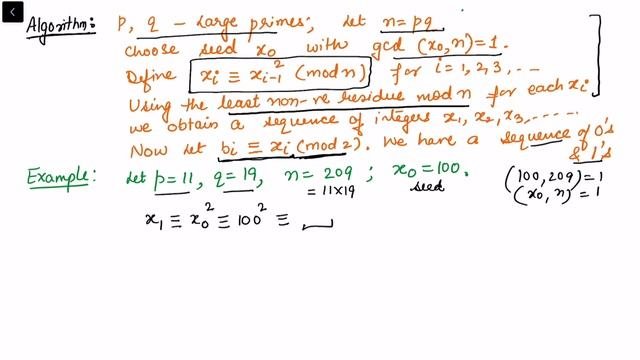 Algorithm: p, q - large primes; let n=pq
choose seed x₀ with gcd (x₀,n)=1.
Define xᵢ ≡ xᵢ₋₁² (mod n) for i=1,2,3, ...
Using the least non-ve residue mod n for each xᵢ
we obtain a sequence of integers x₁, x₂, x₃, .....
Now let bᵢ ≡ xᵢ (mod 2). We have a sequence of 0's
& 1's
Example: let p=11, q=19, n=209 ; x₀=100.
= 11×19 seed
(100,209)=1
(x₀, n) =1
x₁ ≡ x₀² ≡ 100² ≡